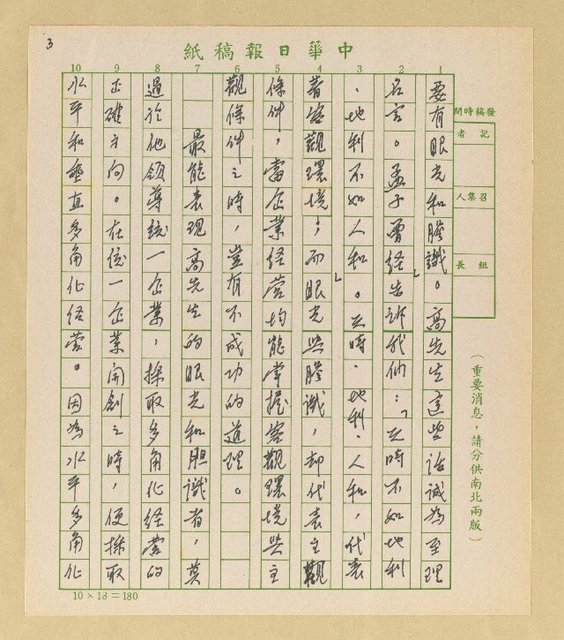 3
中華日報稿紙
發稿時間
記者
召集人
組長
（重要消息，請分供南北兩版）
1 2 3 4 5 6 7 8 9 10
要有眼光和膽識。高先生這些話誠為至理
名言。孟子曾經告訴我們：「天時不如地利
，地利不如人和」。天時、地利、人和，代表
著客觀環境；而眼光與膽識，却代表主觀
條件，當企業經營均能掌握客觀環境與主
觀條件之時，豈有不成功的道理。
最能表現高先生的眼光和胆識者，莫
過於他領導統一企業，採取多角化經營的
正確方向。在統一企業開創之時，便採取
水平和垂直多角化經營。因為水平多角化
10×18=180